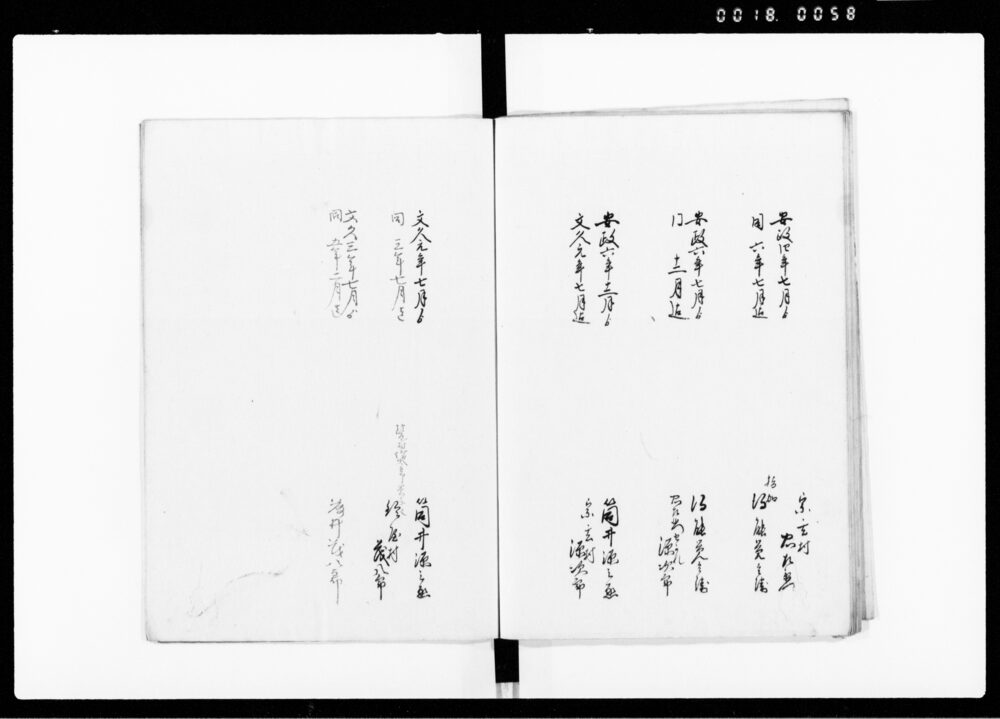 0018. 0058
安政四年七月ゟ
同 六年七月迄
宗玄村
得能覚兵衛
安政六年七月ゟ
同 十二月迄
得能覚兵衛
源次郎
安政六年十二月ゟ
文久元年七月迄
筒井源之丞
宗玄村
源次郎
文久元年七月ゟ
同 三年七月迄
筒井源之丞
鈴屋村
茂八郎
文久三年七月ゟ
同 五年二月迄
茂八郎